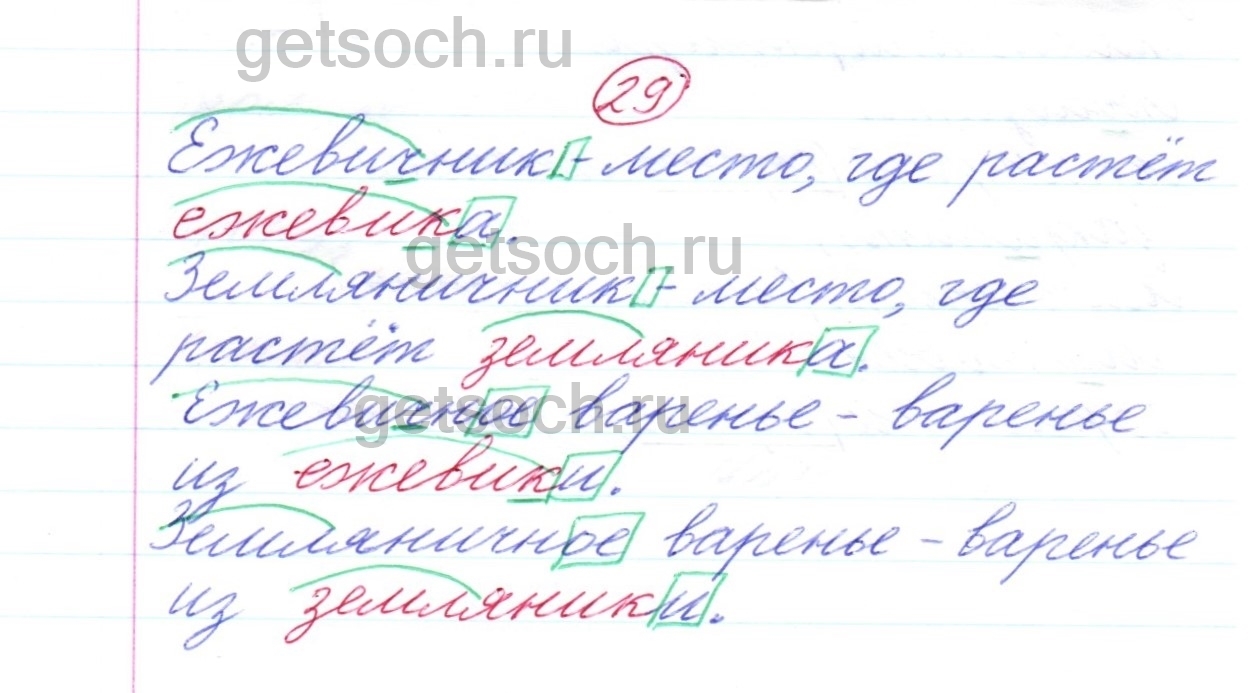 getsoch.ru
29
Ежевичник - место, где растёт
ежевика.
getsoch.ru
Земляничник - место, где
растёт земляника.
getsoch.ru
Ежевичное варенье - варенье
из ежевики.
Земляничное варенье - варенье
из земляники.